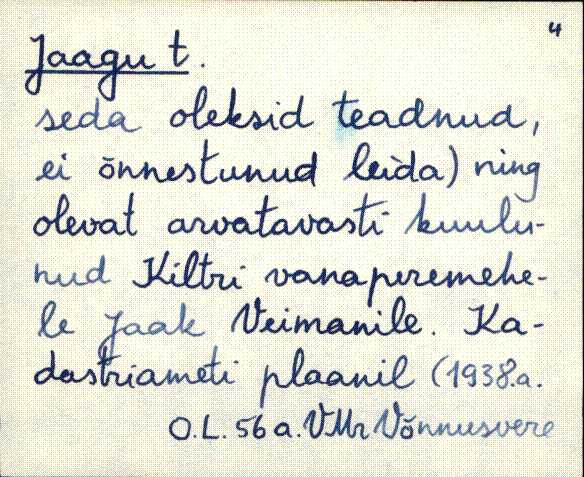 4
Jaagu t.
seda oleksid teadnud,
ei õnnestunud leida) ning
olevat arvatavasti kuulu-
nud Kiltri vanaperemehe-
le Jaak Veimanile. Ka-
dastriameti plaanil (1938.a.
O.L. 56 a. VMr Võnnusvere